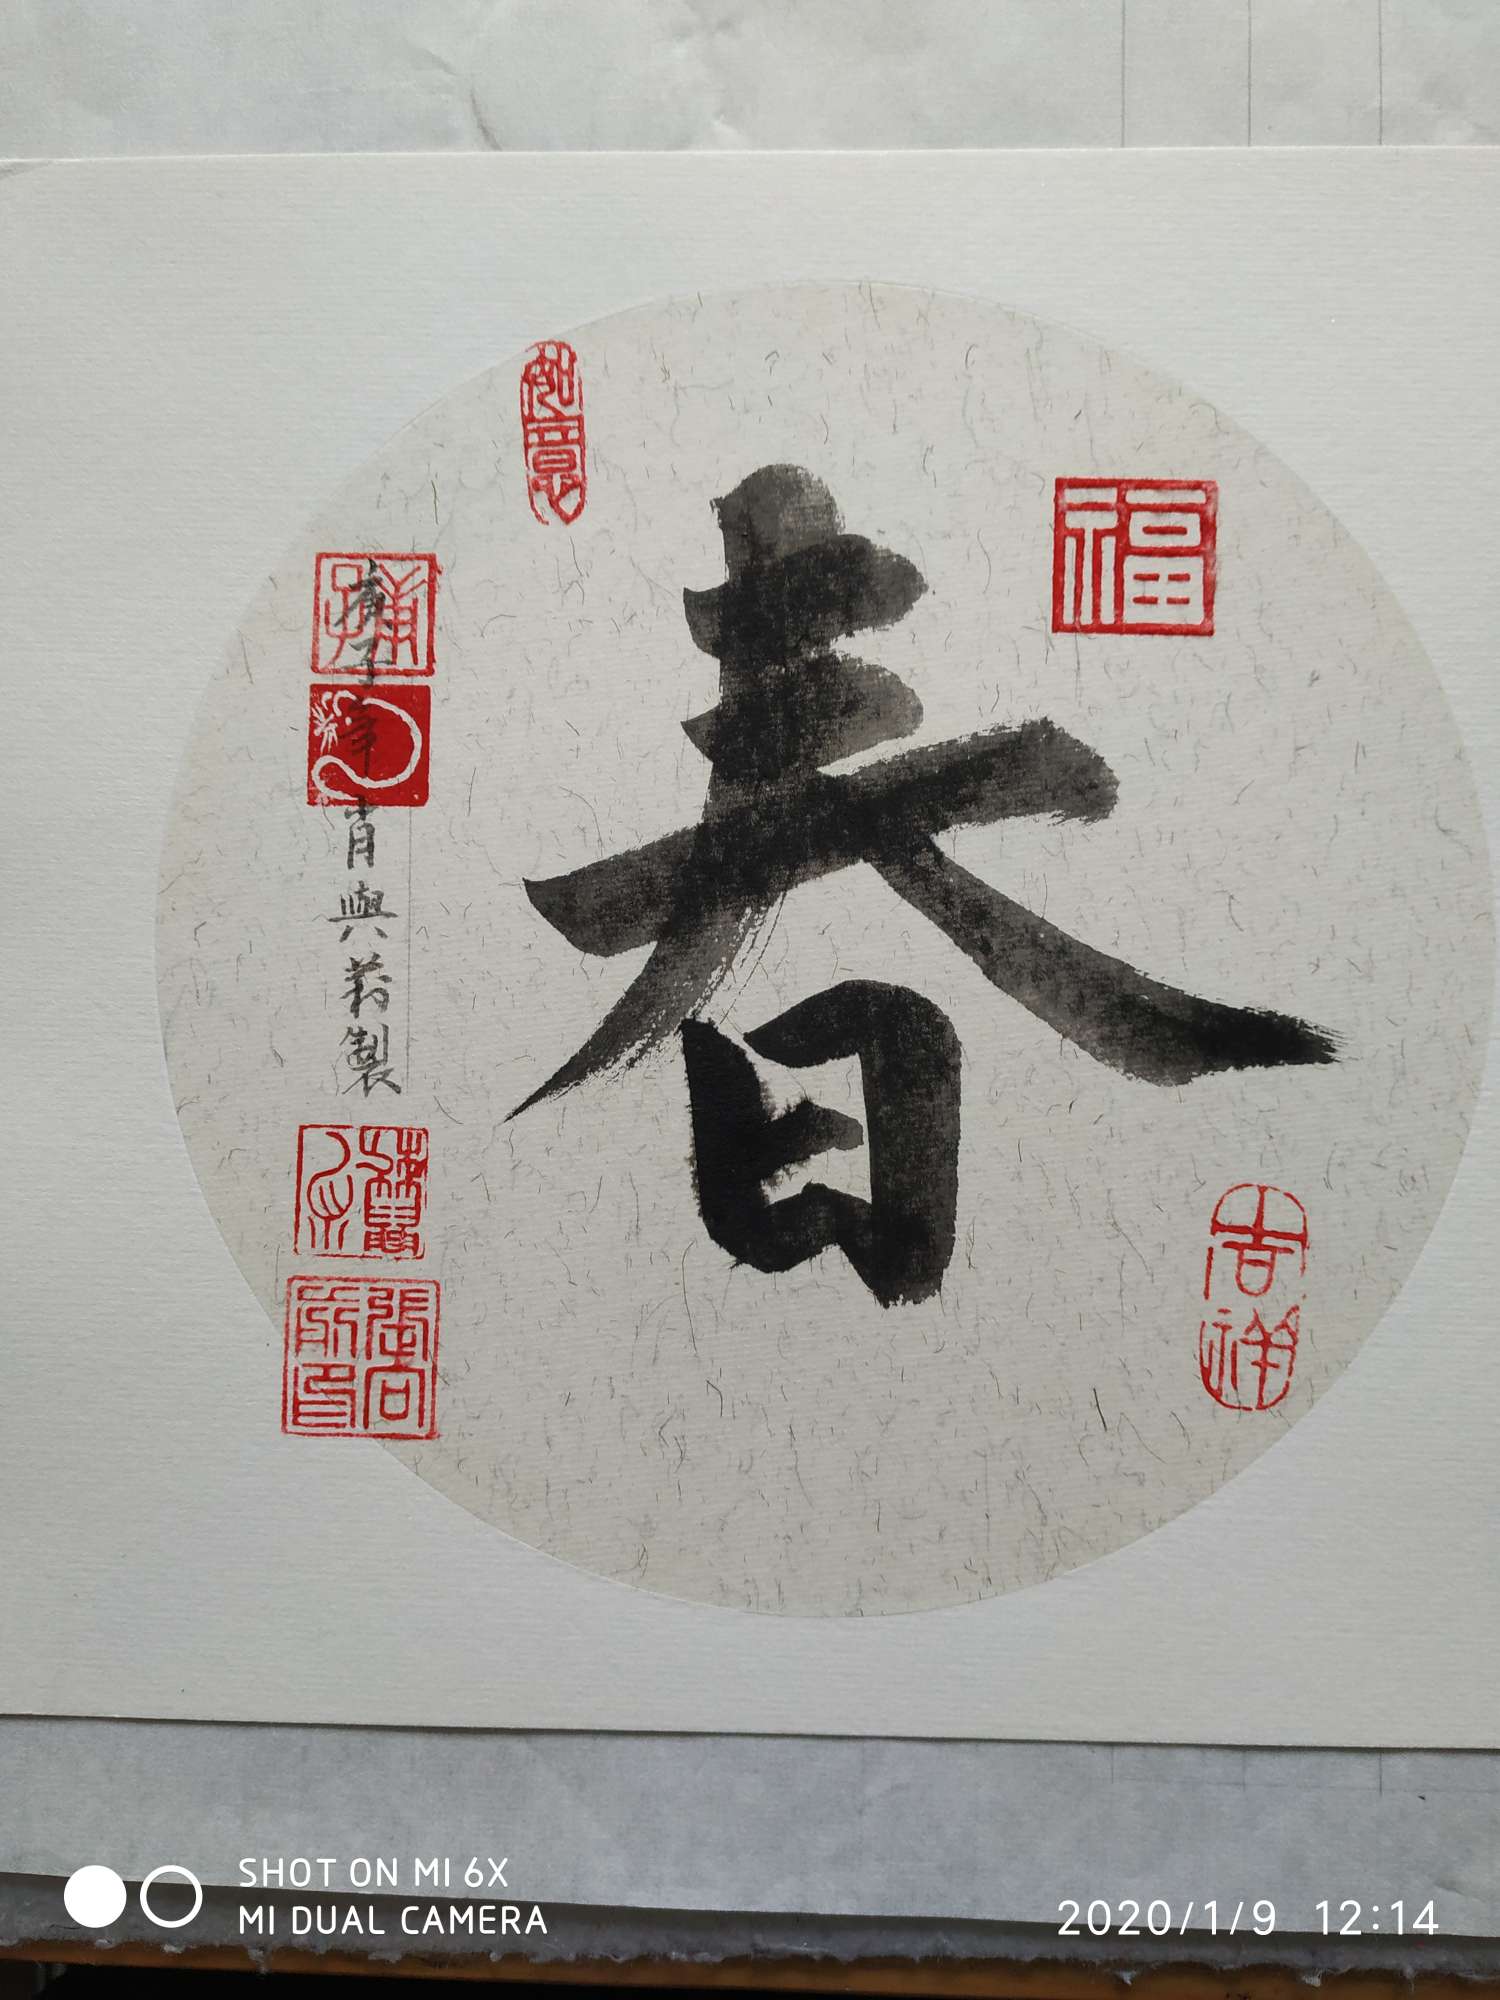 春
福
吉祥
如意
庚子年肖與莉製
SHOT ON MI 6X
MI DUAL CAMERA
2020/1/9 12:14